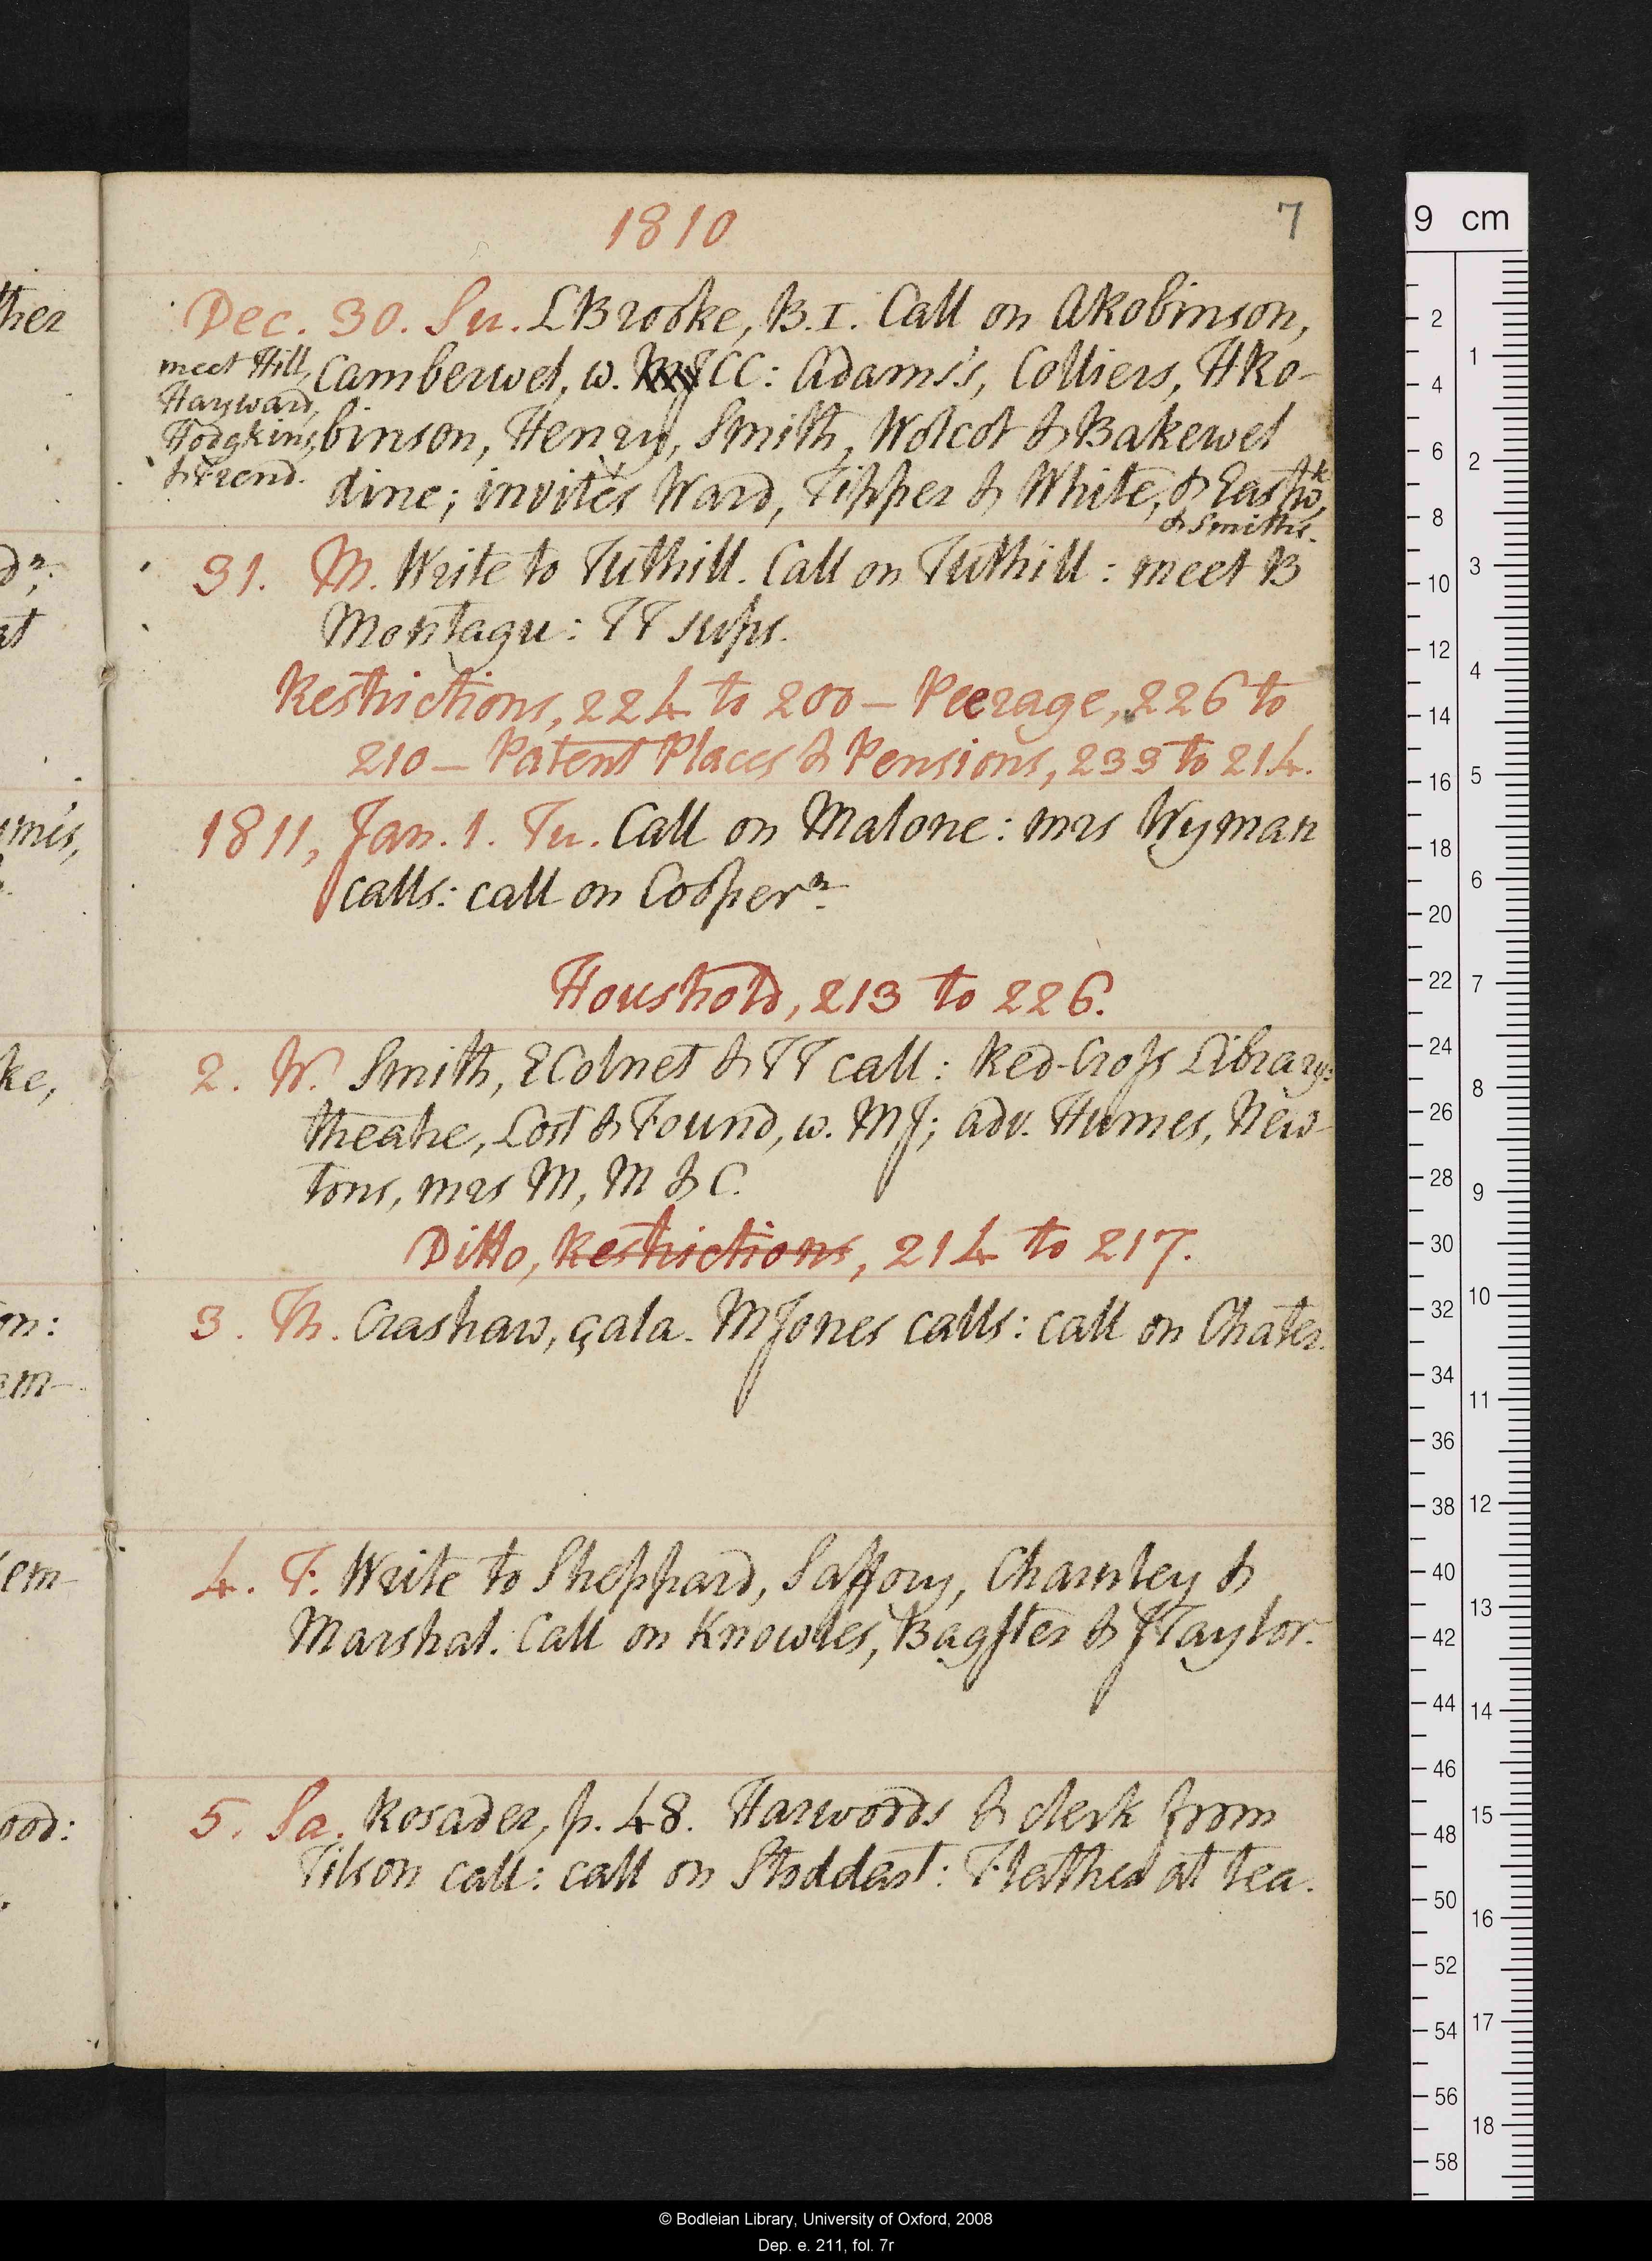 1810
7
Dec. 30. Su. LBrooke, B.I. Call on ARobinson,
meet Hill,
Hayward,
Hodgkins,
& Frend.
Camberwel, w. MJ CC: Adams's, Colliers, HRo-
binson, Henry, Smith, Wolcot & Bakewel
dine; invités Ward, Tipper & White, & Eastwk,
& Smiths.
31. M. Write to Tuthill. Call on Tuthill: meet B
Montagu: TT sups.
Restrictions, 224 to 200 — Peerage, 226 to
210 — Patent Places & Pensions, 233 to 214.
1811, Jan. 1. Tu. Call on Malone: mrs Wyman
calls: call on Cooper n.
Houshold, 213 to 226.
2. W. Smith, EColnet & TT call: Red-Cross Library:
theatre, Lost & Found, w. MJ; adv. Humes, New-
tons, mrs M, M & C.
Ditto, Restrictions, 214 to 217.
3. Th. Crashaw, çala. MJones calls: call on Chater.
4. F. Write to Sheppard, Saffory, Charnley &
Marshal. Call on Knowles, Bagster & JTaylor.
5. Sa. Rosader, p. 48. Harwoods & clerk from
Tilson call: call on Stoddart: Flather at tea.
ther
dn;
at
mis,
ke,
on:
em-
em-
ood:
9 cm
2
4
6
8
10
12
14
16
18
20
22
24
26
28
30
32
34
36
38
40
42
44
46
48
50
52
54
56
58
1
2
3
4
5
6
7
8
9
10
11
12
13
14
15
16
17
18
© Bodleian Library, University of Oxford, 2008
Dep. e. 211, fol. 7r